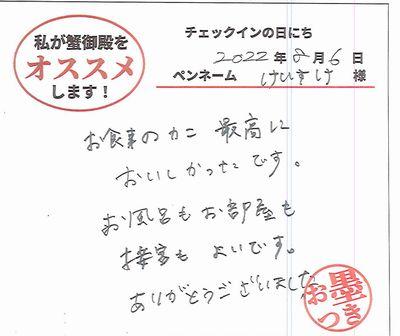 私が蟹御殿を
オススメ
します！
チェックインの日にち
2022年8月6日
ペンネーム けいすけ 様
お食事のカニ 最高に
おいしかったです。
お風呂もお部屋も
接客もよいです。
ありがとうございました
お墨つき